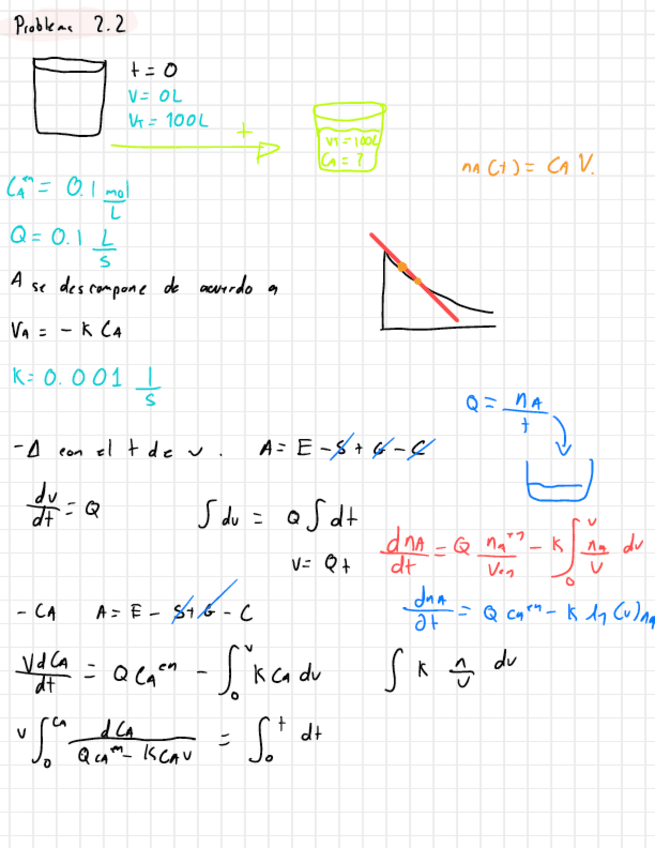 Problema 2.2
t = 0
V = 0L
V_T = 100L
t
V_T = 100L
C_A = ?
n_A (t) = C_A V.
C_A^{en} = 0.1 mol/L
Q = 0.1 L/s
A se descompone de acuerdo a
V_A = - K C_A
K = 0.001 1/s
Q = n_A / t
- Δ con el t de v . A = E - S + G - C
dv/dt = Q ∫ dv = Q ∫ dt
V = Qt
dn_A/dt = Q n_A^{en}/V_{en} - K ∫_0^V n_A/V dv
- C_A A = E - S + G - C
dn_A/∂t = Q C_A^{en} - K ln (v) n_A
V dC_A/dt = Q C_A^{en} - ∫_0^V K C_A dv ∫ K n/v dv
V ∫_0^{C_A} dC_A/(Q C_A^{en} - K C_A V) = ∫_0^t dt